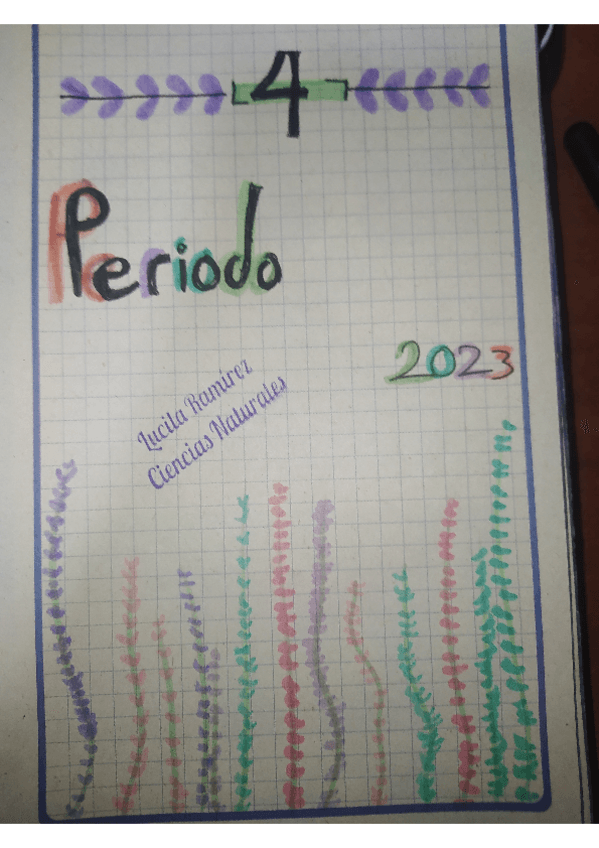 4
Periodo
2023
Lucila Ramírez
Ciencias Naturales